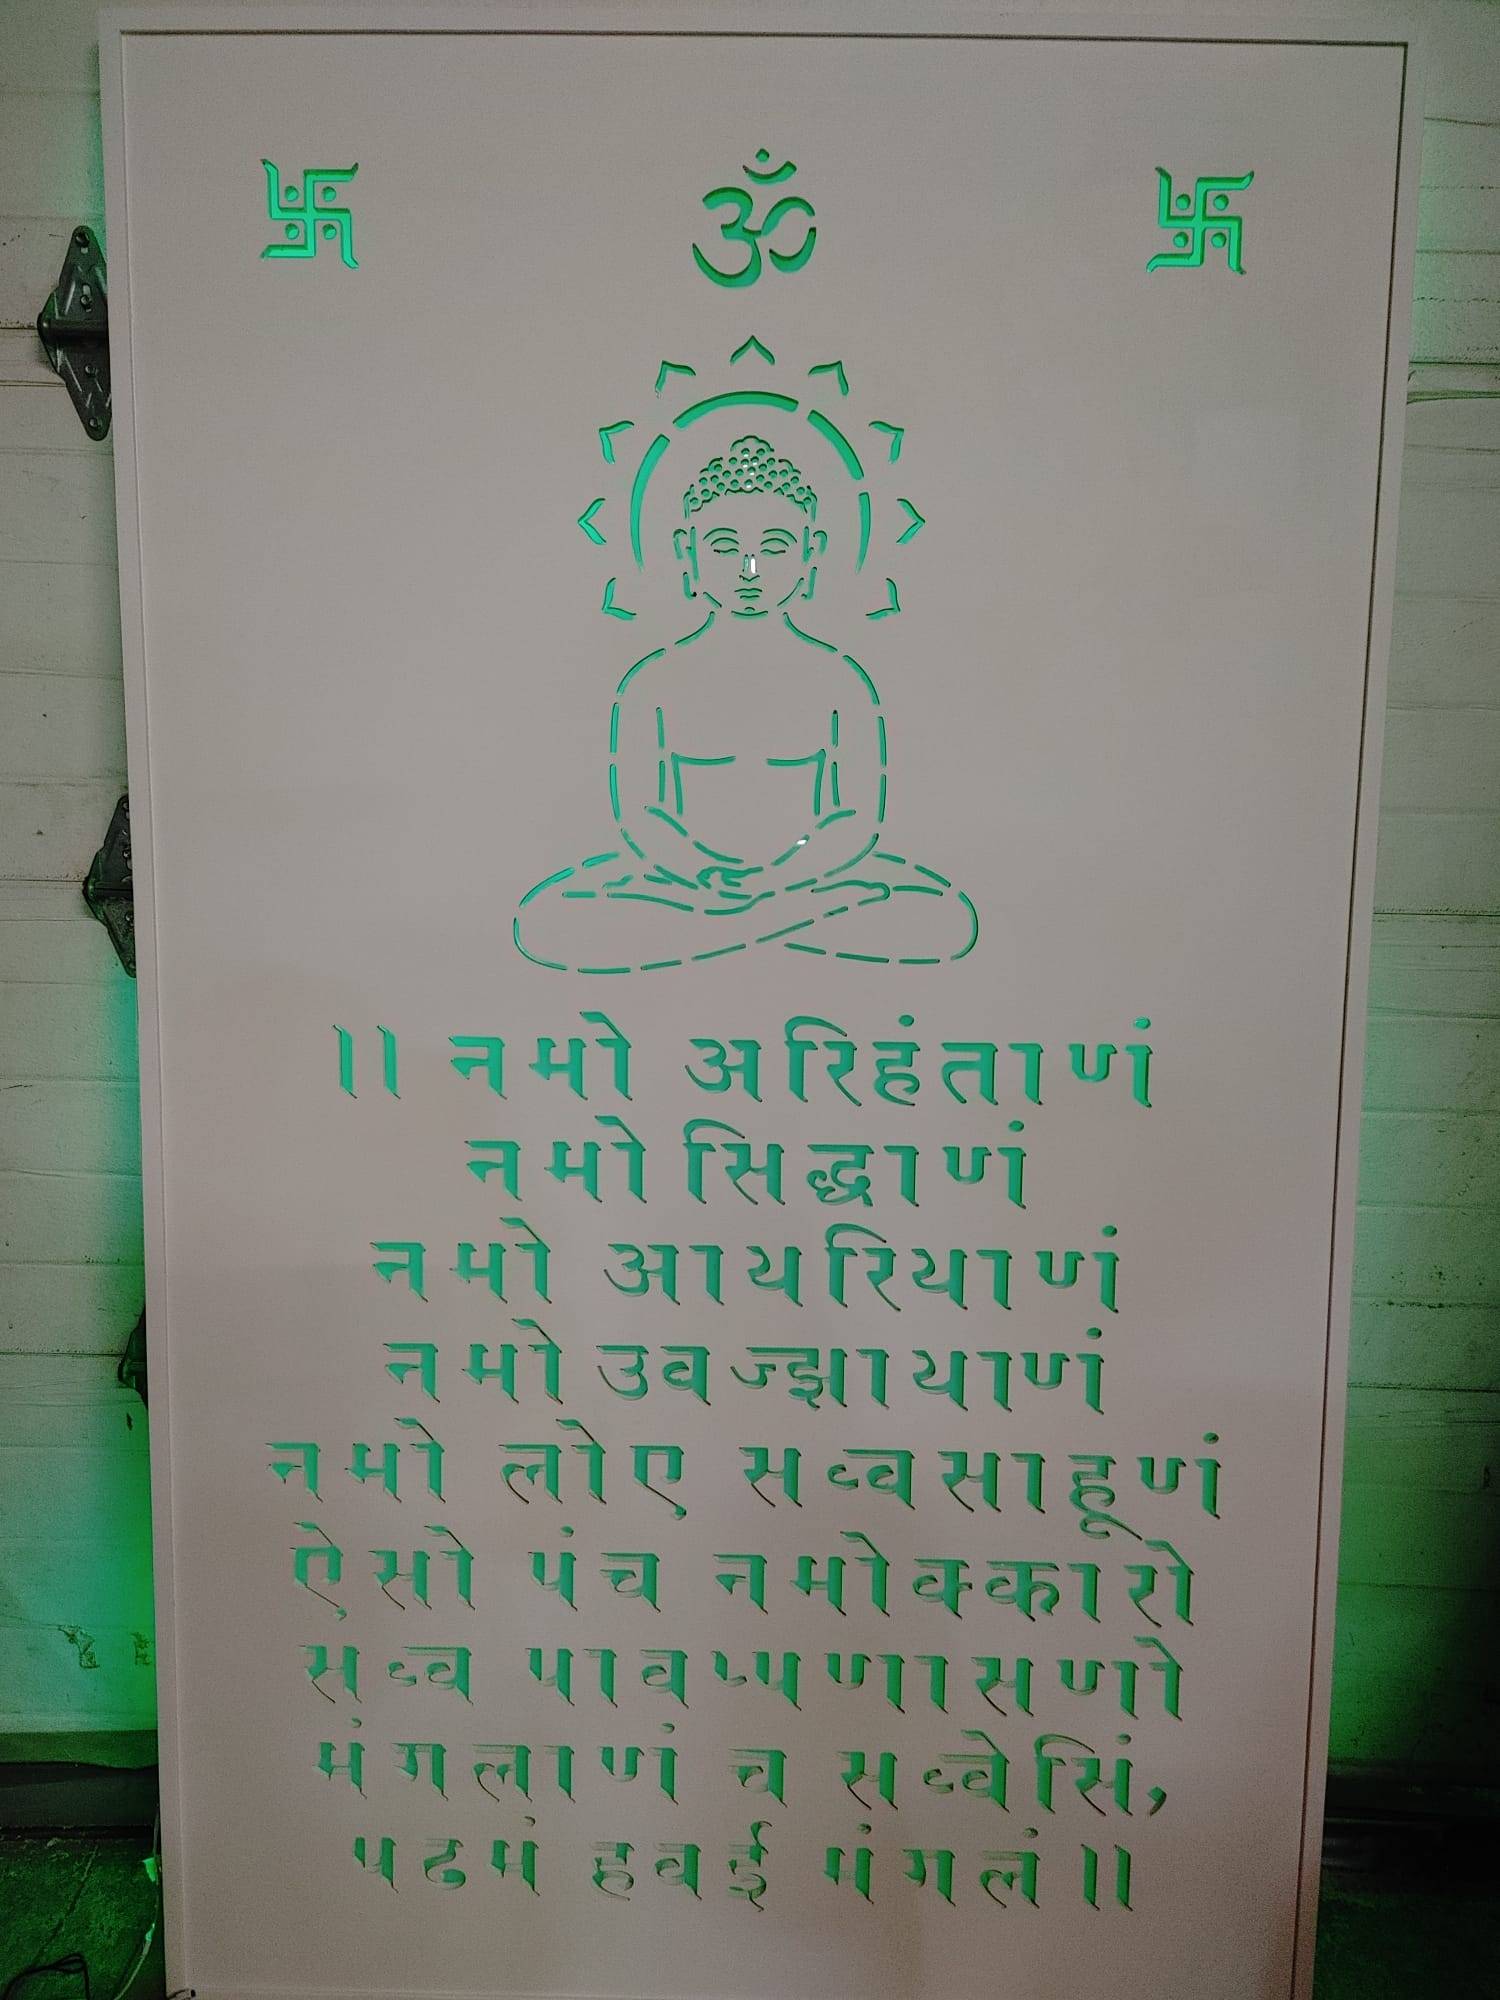 ॐ
।। नमो अरिहंताणं
नमो सिद्धाणं
नमो आयरियाणं
नमो उवज्झायाणं
नमो लोए सव्वसाहूणं
ऐसो पंच नमोक्कारो
सव्व पावप्पणासणो
मंगलाणं च सव्वेसिं,
पढमं हवई मंगलं ।।